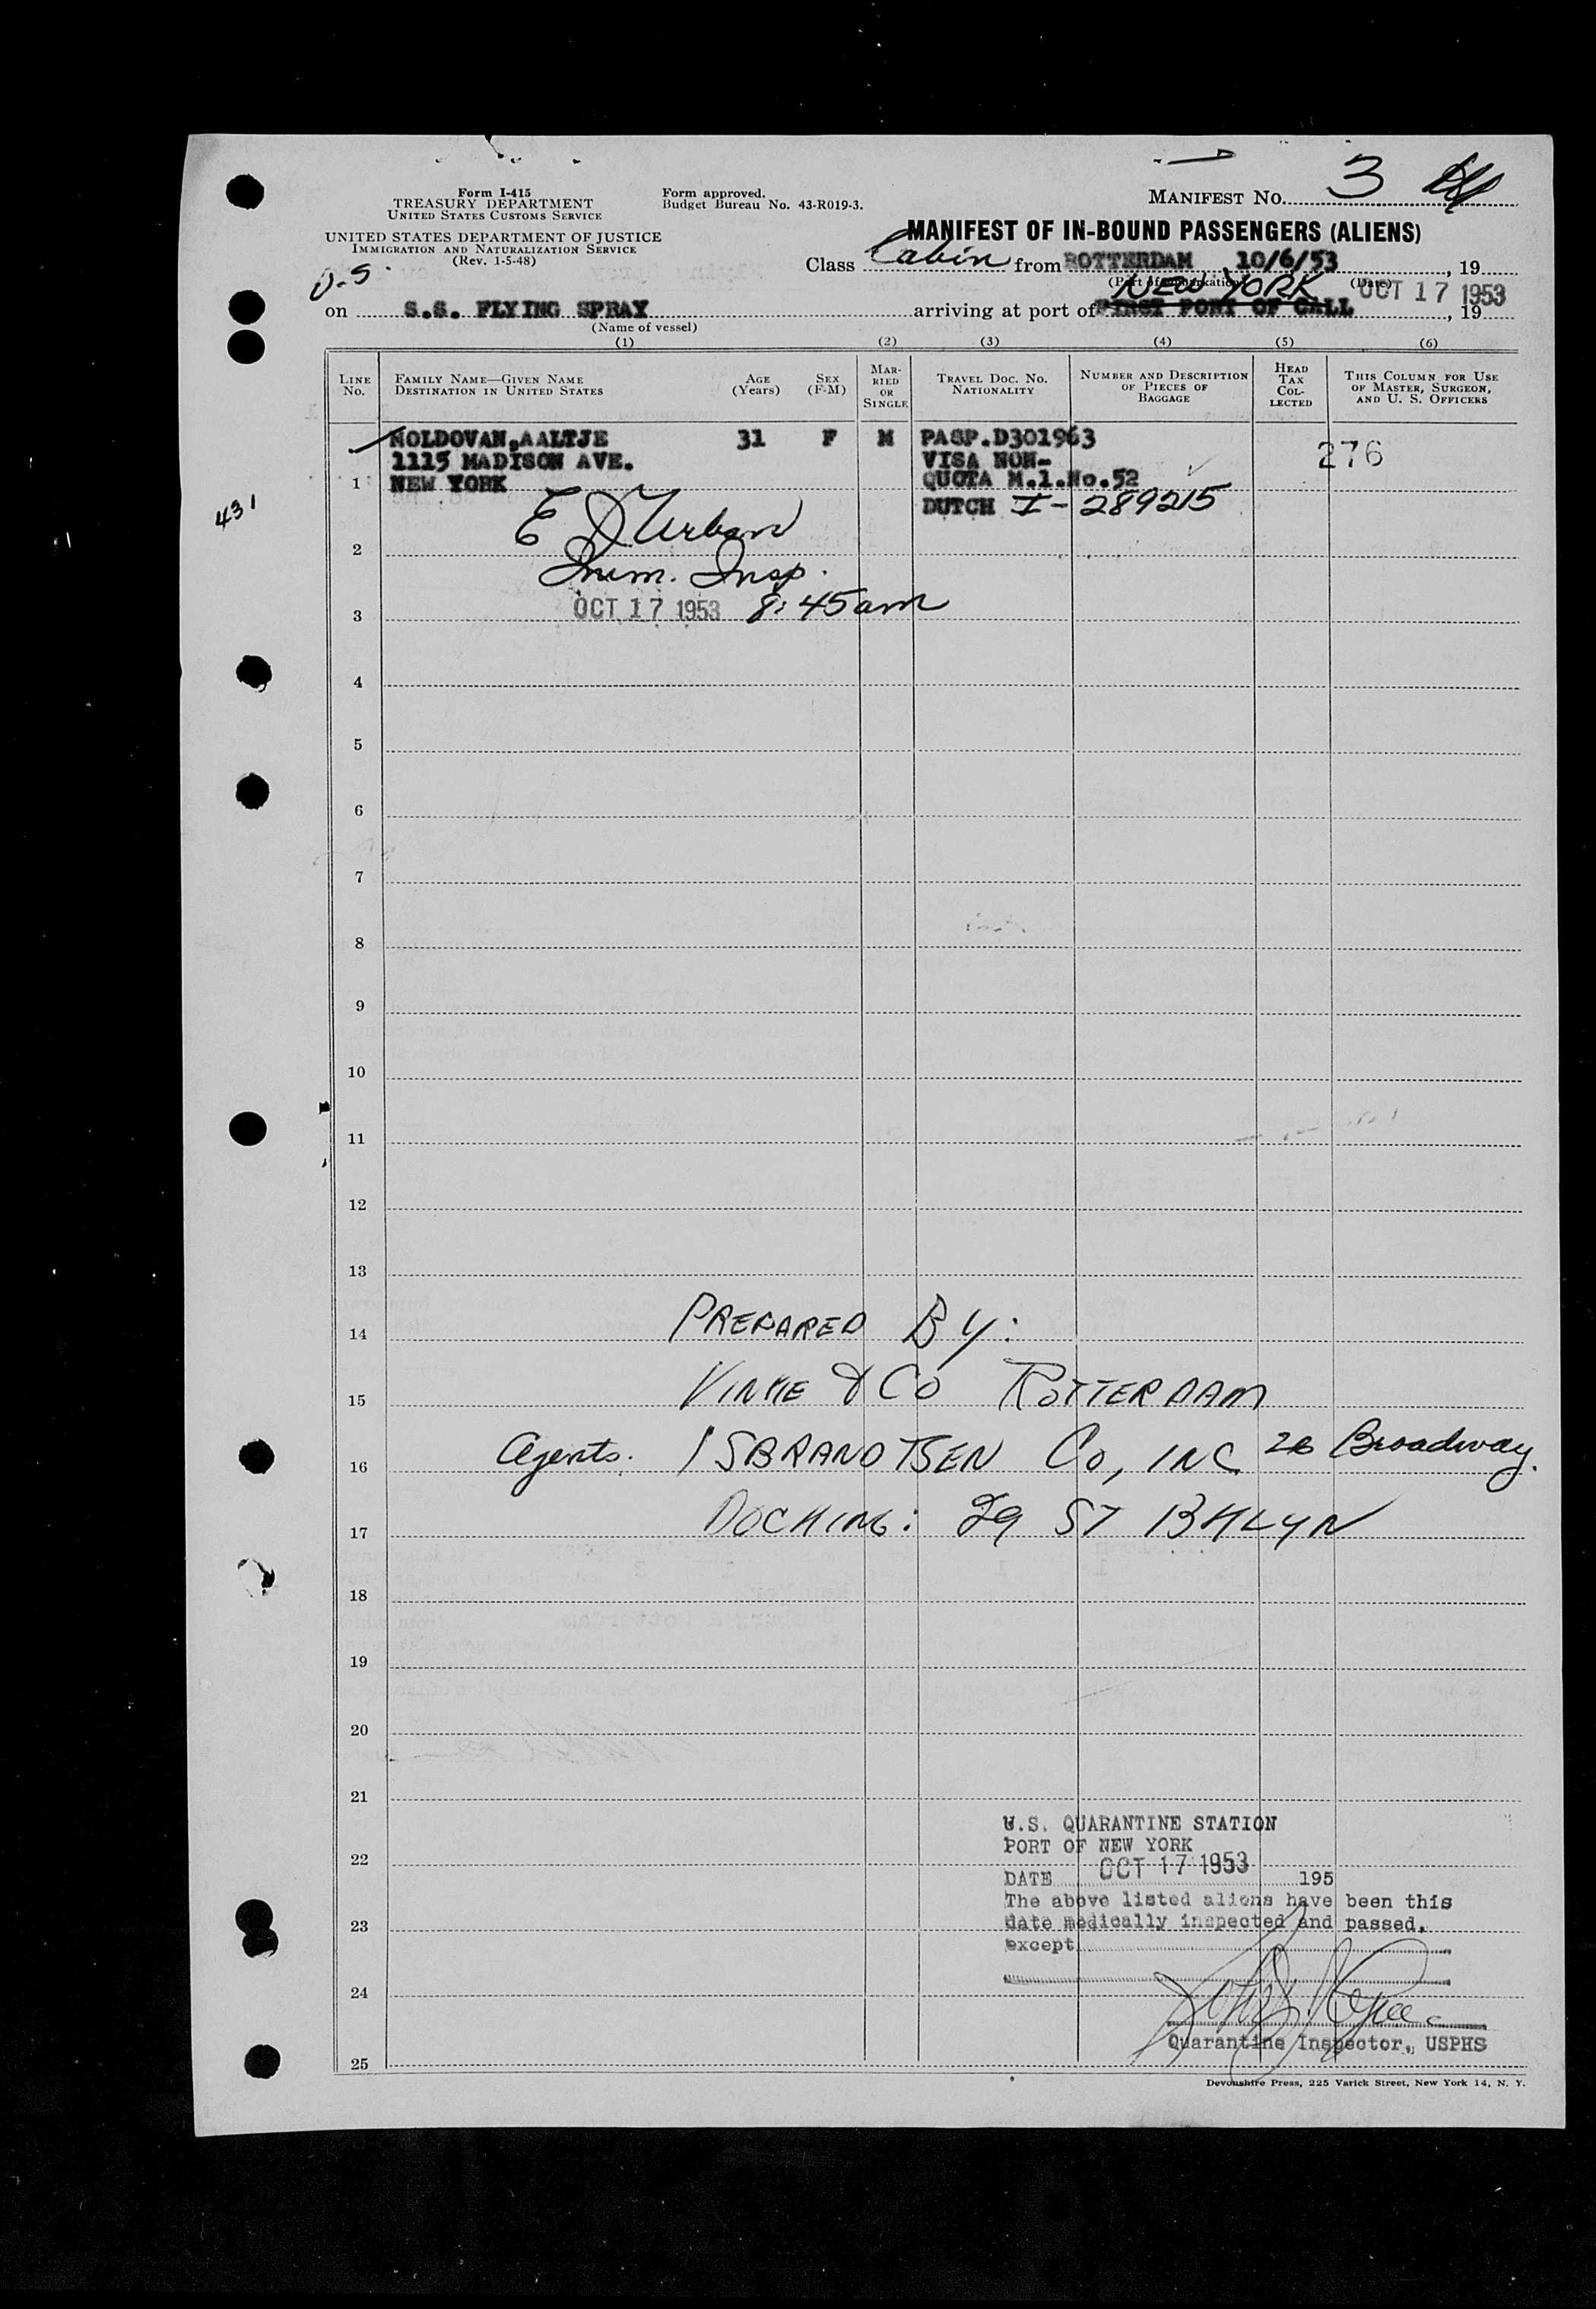 Form I-415
TREASURY DEPARTMENT
UNITED STATES CUSTOMS SERVICE
UNITED STATES DEPARTMENT OF JUSTICE
IMMIGRATION AND NATURALIZATION SERVICE
(Rev. 1-5-48)
Form approved.
Budget Bureau No. 43-R019-3.
MANIFEST No. 3
MANIFEST OF IN-BOUND PASSENGERS (ALIENS)
Class Cabin from ROTTERDAM 10/6/53, 19
(Port of embarkation) (Date)
NEW YORK OCT 17 1953
on S.S. FLYING SPRAY arriving at port of FIRST PORT OF CALL, 19
(Name of vessel)
(1) (2) (3) (4) (5) (6)
LINE No.
FAMILY NAME—GIVEN NAME
DESTINATION IN UNITED STATES
AGE (Years)
SEX (F-M)
MARRIED OR SINGLE
TRAVEL DOC. NO.
NATIONALITY
NUMBER AND DESCRIPTION OF PIECES OF BAGGAGE
HEAD TAX COLLECTED
THIS COLUMN FOR USE OF MASTER, SURGEON, AND U. S. OFFICERS
MOLDOVAN,AALTJE 31 F M PASP.D301963
1115 MADISON AVE. VISA NON- 276
1 NEW YORK QUOTA M.1.No.52
DUTCH I-289215
431
E J Urban
2
Imm. Insp.
3 OCT 17 1953 8:45am
4
5
6
7
8
9
10
11
12
13
14 PREPARED BY:
15 VINKE & CO ROTTERDAM
16 Agents. ISBRANDTSEN Co, INC 26 Broadway.
17 DOCKING: 29 ST BKLYN
18
19
20
21
U.S. QUARANTINE STATION
PORT OF NEW YORK
22
DATE OCT 17 1953 195
The above listed aliens have been this
23 date medically inspected and passed,
except
24
Quarantine Inspector, USPHS
25
Devonshire Press, 225 Varick Street, New York 14, N. Y.